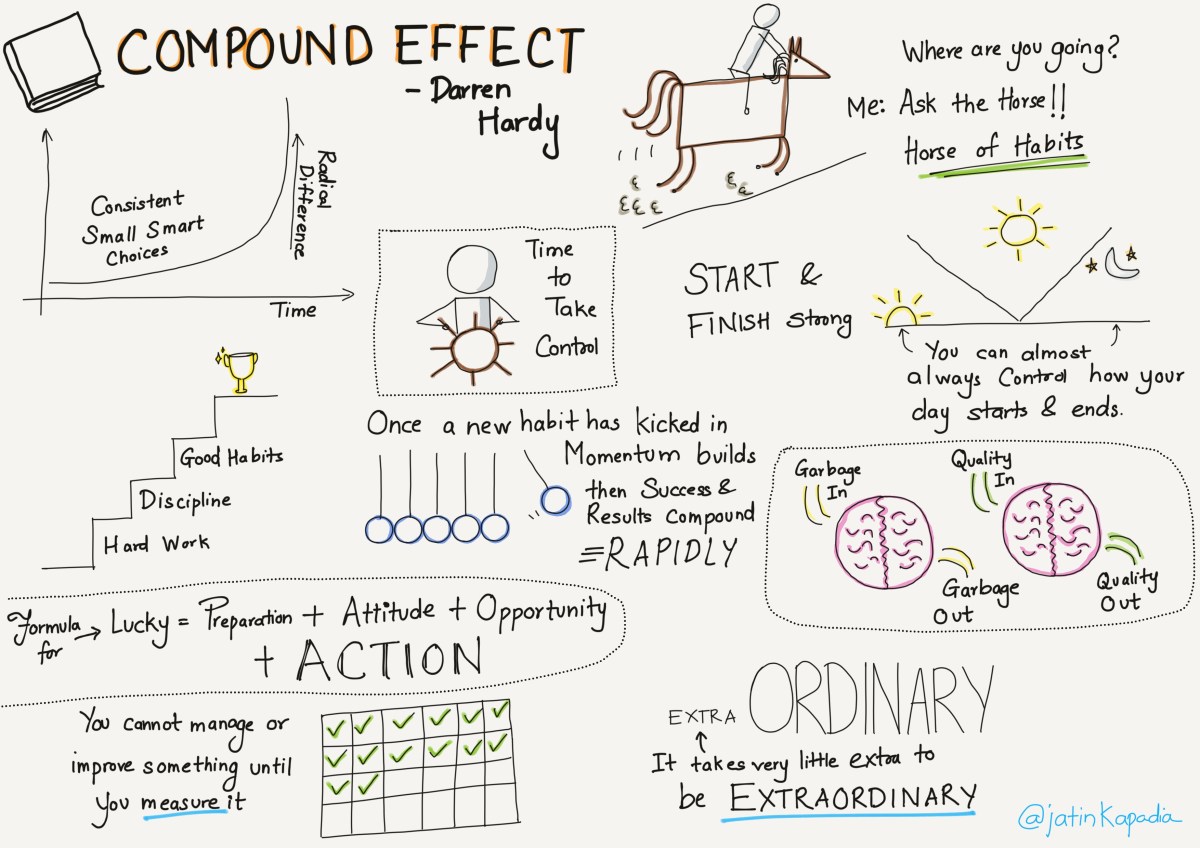 COMPOUND EFFECT
- Darren
Hardy
Consistent
Small Smart
Choices
Radical
Difference
Time
Where are you going?
Me: Ask the Horse!!
Horse of Habits
Time
to
Take
Control
START &
FINISH Strong
You can almost
always Control how your
day starts & ends.
Good Habits
Discipline
Hard Work
Once a new habit has kicked in
Momentum builds
then Success &
Results Compound
RAPIDLY
Garbage
In
Garbage
Out
Quality
In
Quality
Out
Formula
for
Lucky = Preparation + Attitude + Opportunity
+ ACTION
You cannot manage or
improve something until
you measure it
EXTRA ORDINARY
It takes very little extra to
be EXTRAORDINARY
@jatinkapadia